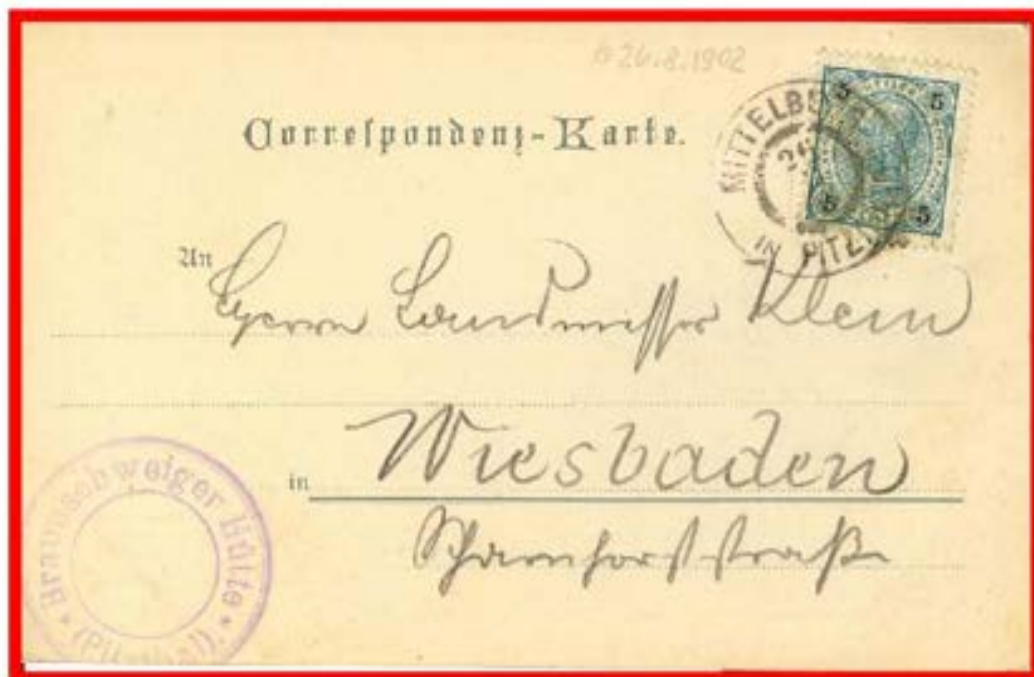 26.8.1902
Correspondenz-Karte.
5 5
5 5
MITTELBE
IN PITZ
An
Herrn Landmesser Klein
in Wiesbaden
Scharnhorststraße
* Braunschweiger Hütte *